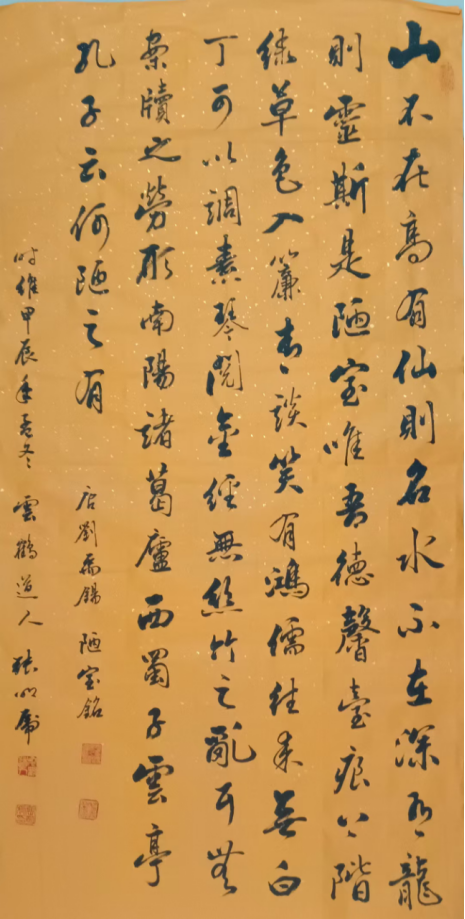 山不在高有仙則名水不在深有龍
則靈斯是陋室唯吾德馨臺痕上階
綠草色入簾青談笑有鴻儒往來無白
丁可以調素琴閱金經無絲竹之亂耳無
案牘之勞形南陽諸葛廬西蜀子雲亭
孔子云何陋之有
唐劉禹錫 陋室銘
時維甲辰年孟冬 雲鶴道人